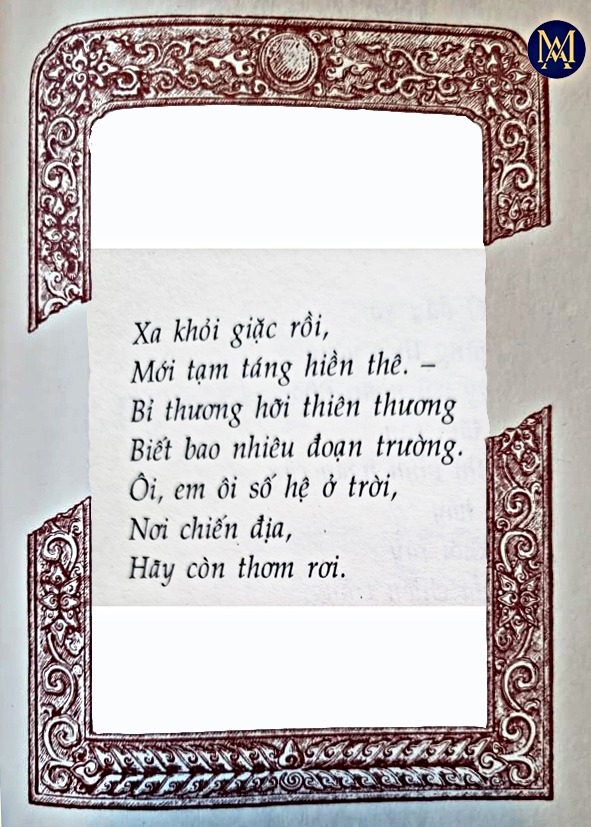 MA
Xa khỏi giặc rồi,
Mới tạm táng hiền thê. –
Bi thương hỡi thiên thương
Biết bao nhiêu đoạn trường.
Ôi, em ôi số hệ ở trời,
Nơi chiến địa,
Hãy còn thơm rơi.